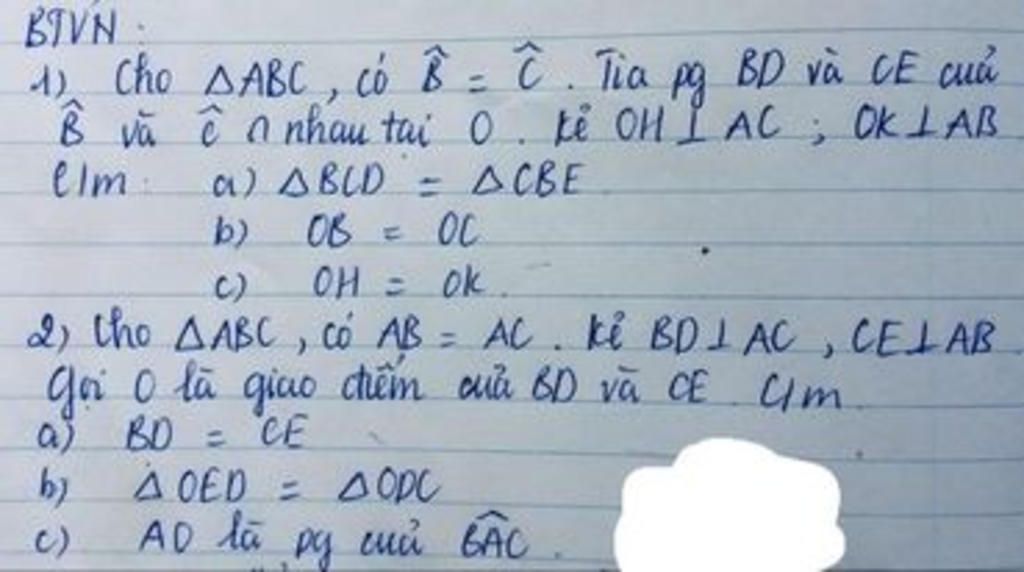 BTVN:
1) Cho ΔABC, có B̂ = Ĉ. Tia pg BD và CE của
B̂ và Ĉ ∩ nhau tại O. Kẻ OH ⊥ AC; OK ⊥ AB
C/m: a) ΔBCD = ΔCBE
b) OB = OC
c) OH = OK.
2) Cho ΔABC, có AB = AC. Kẻ BD ⊥ AC, CE ⊥ AB
Gọi O là giao điểm của BD và CE. C/m
a) BD = CE
b) ΔOED = ΔODC
c) AO là pg của BÂC.